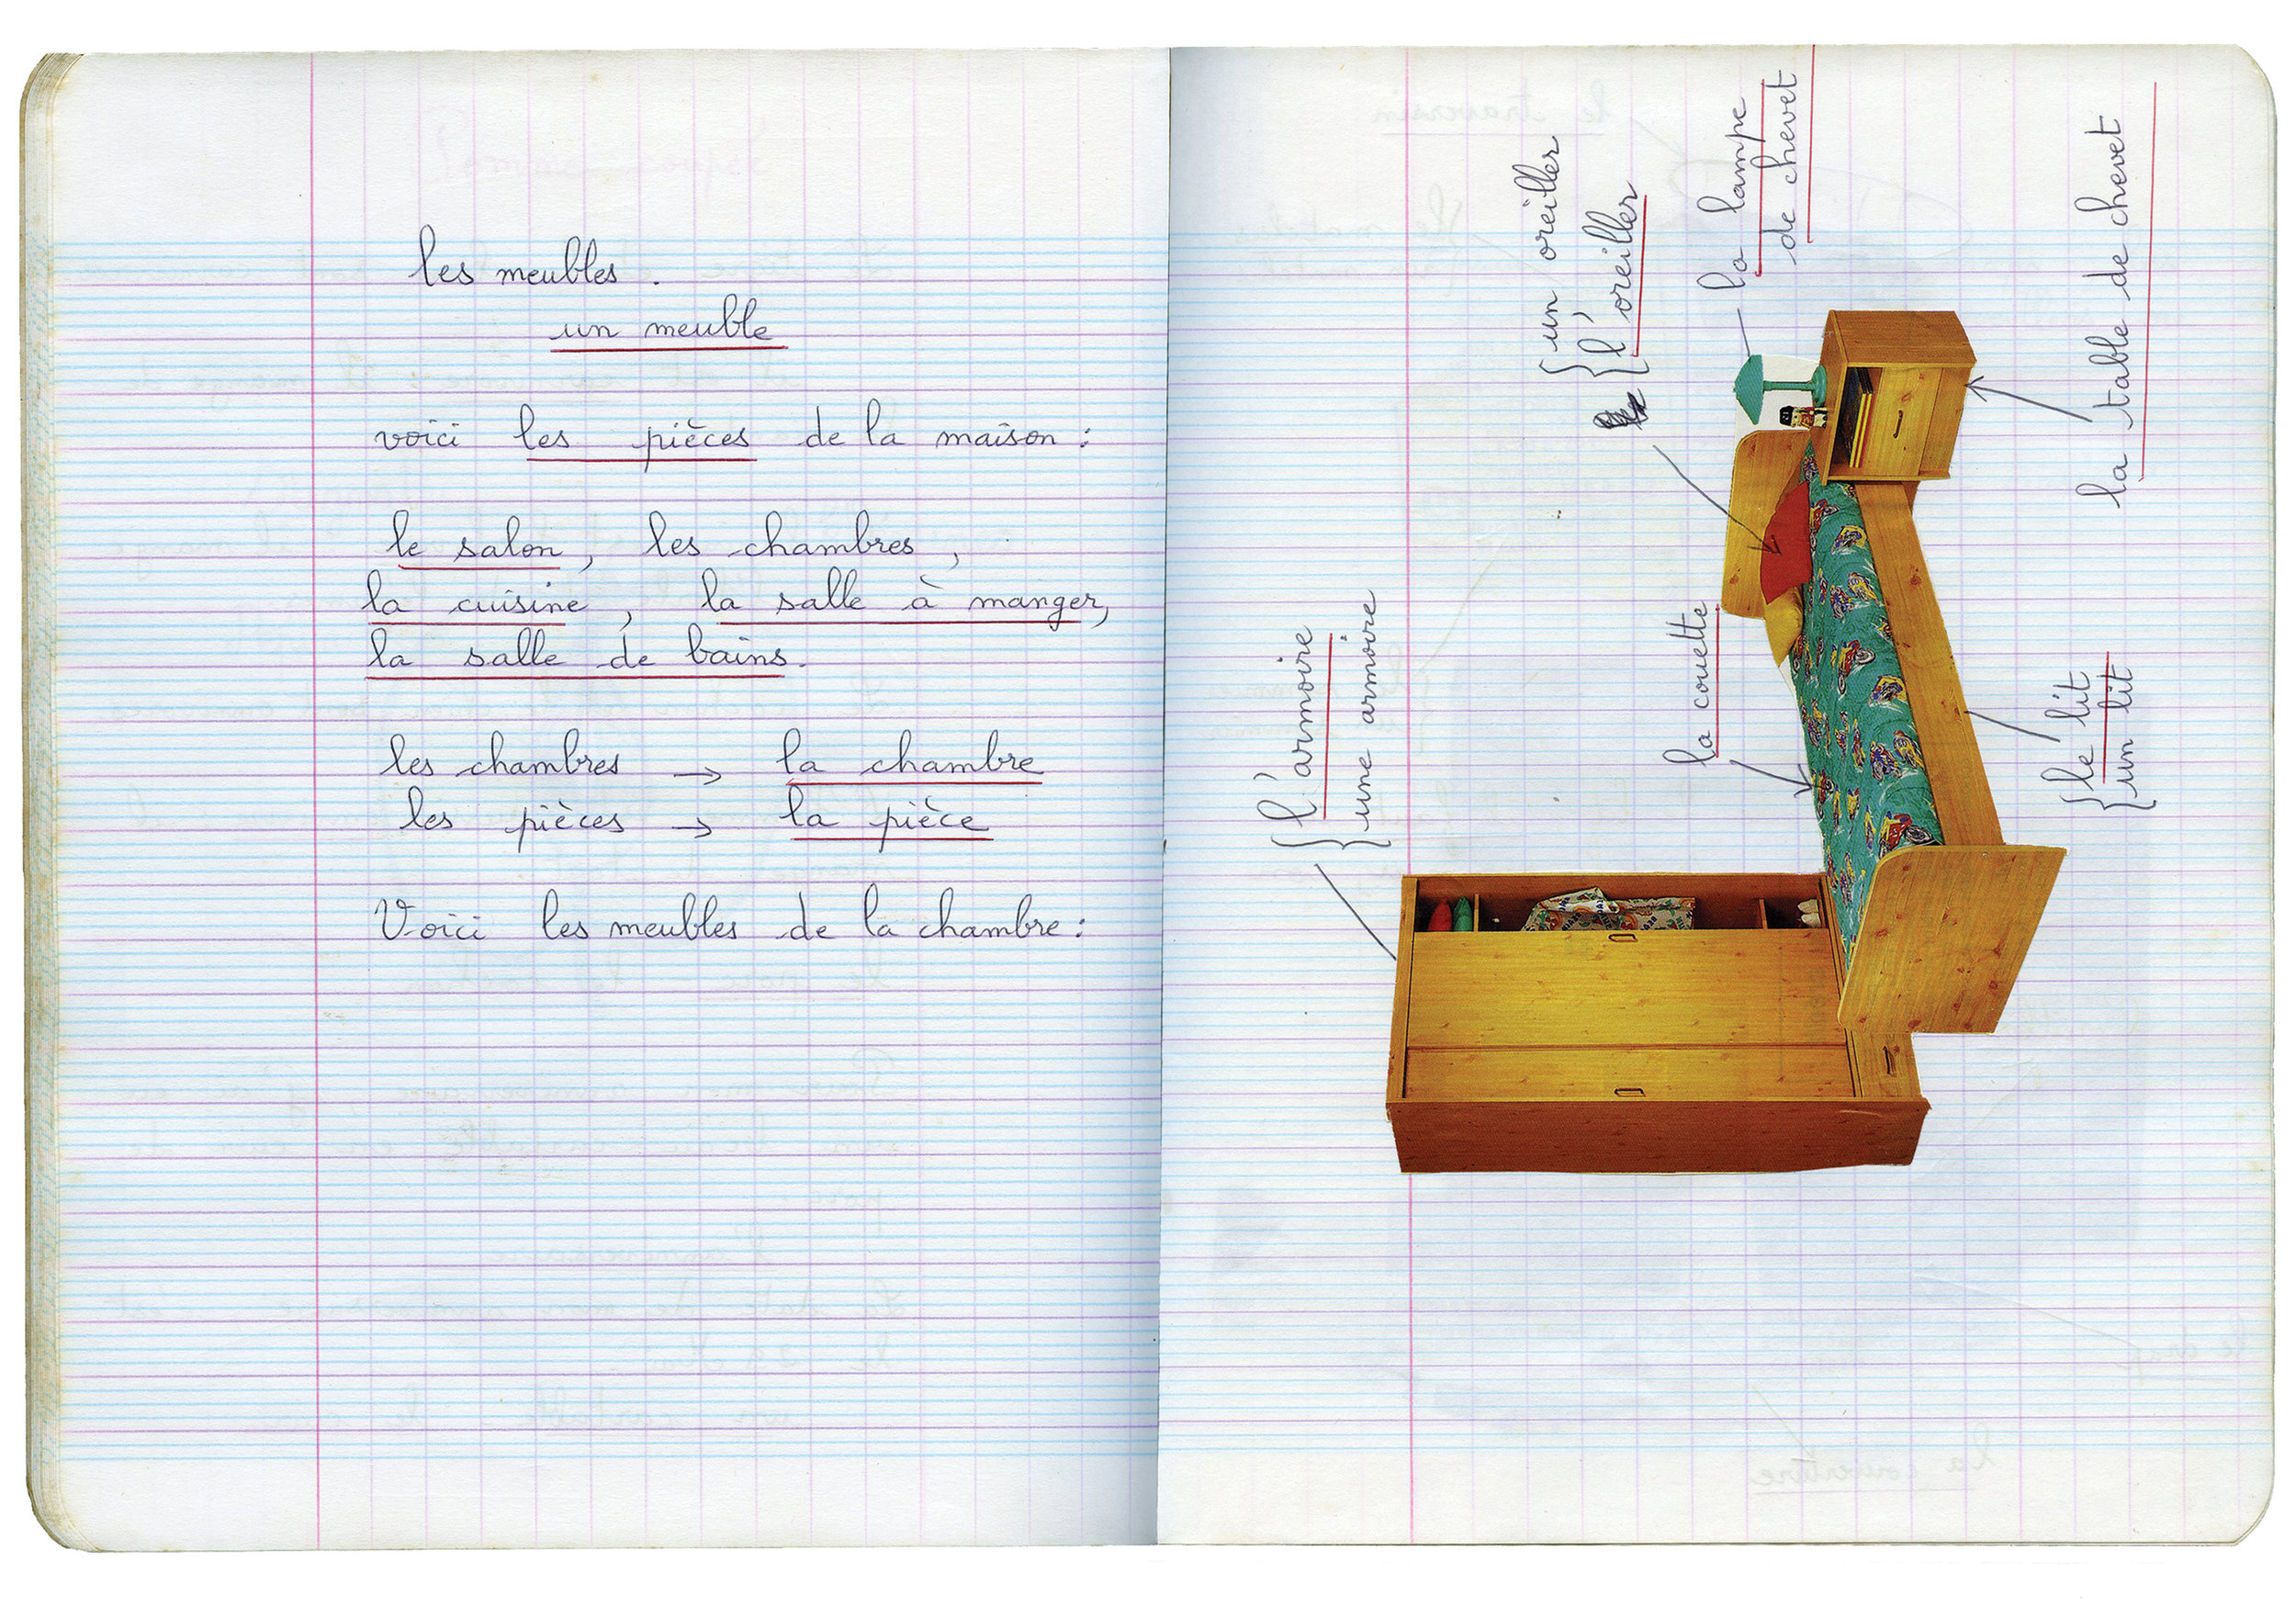 les meubles.
un meuble
voici les pièces de la maison :
le salon, les chambres,
la cuisine, la salle à manger,
la salle de bains.
les chambres → la chambre
les pièces → la pièce
Voici les meubles de la chambre :
l'armoire
une armoire
un oreiller
l'oreiller
la couette
la lampe
de chevet
le lit
un lit
la table de chevet